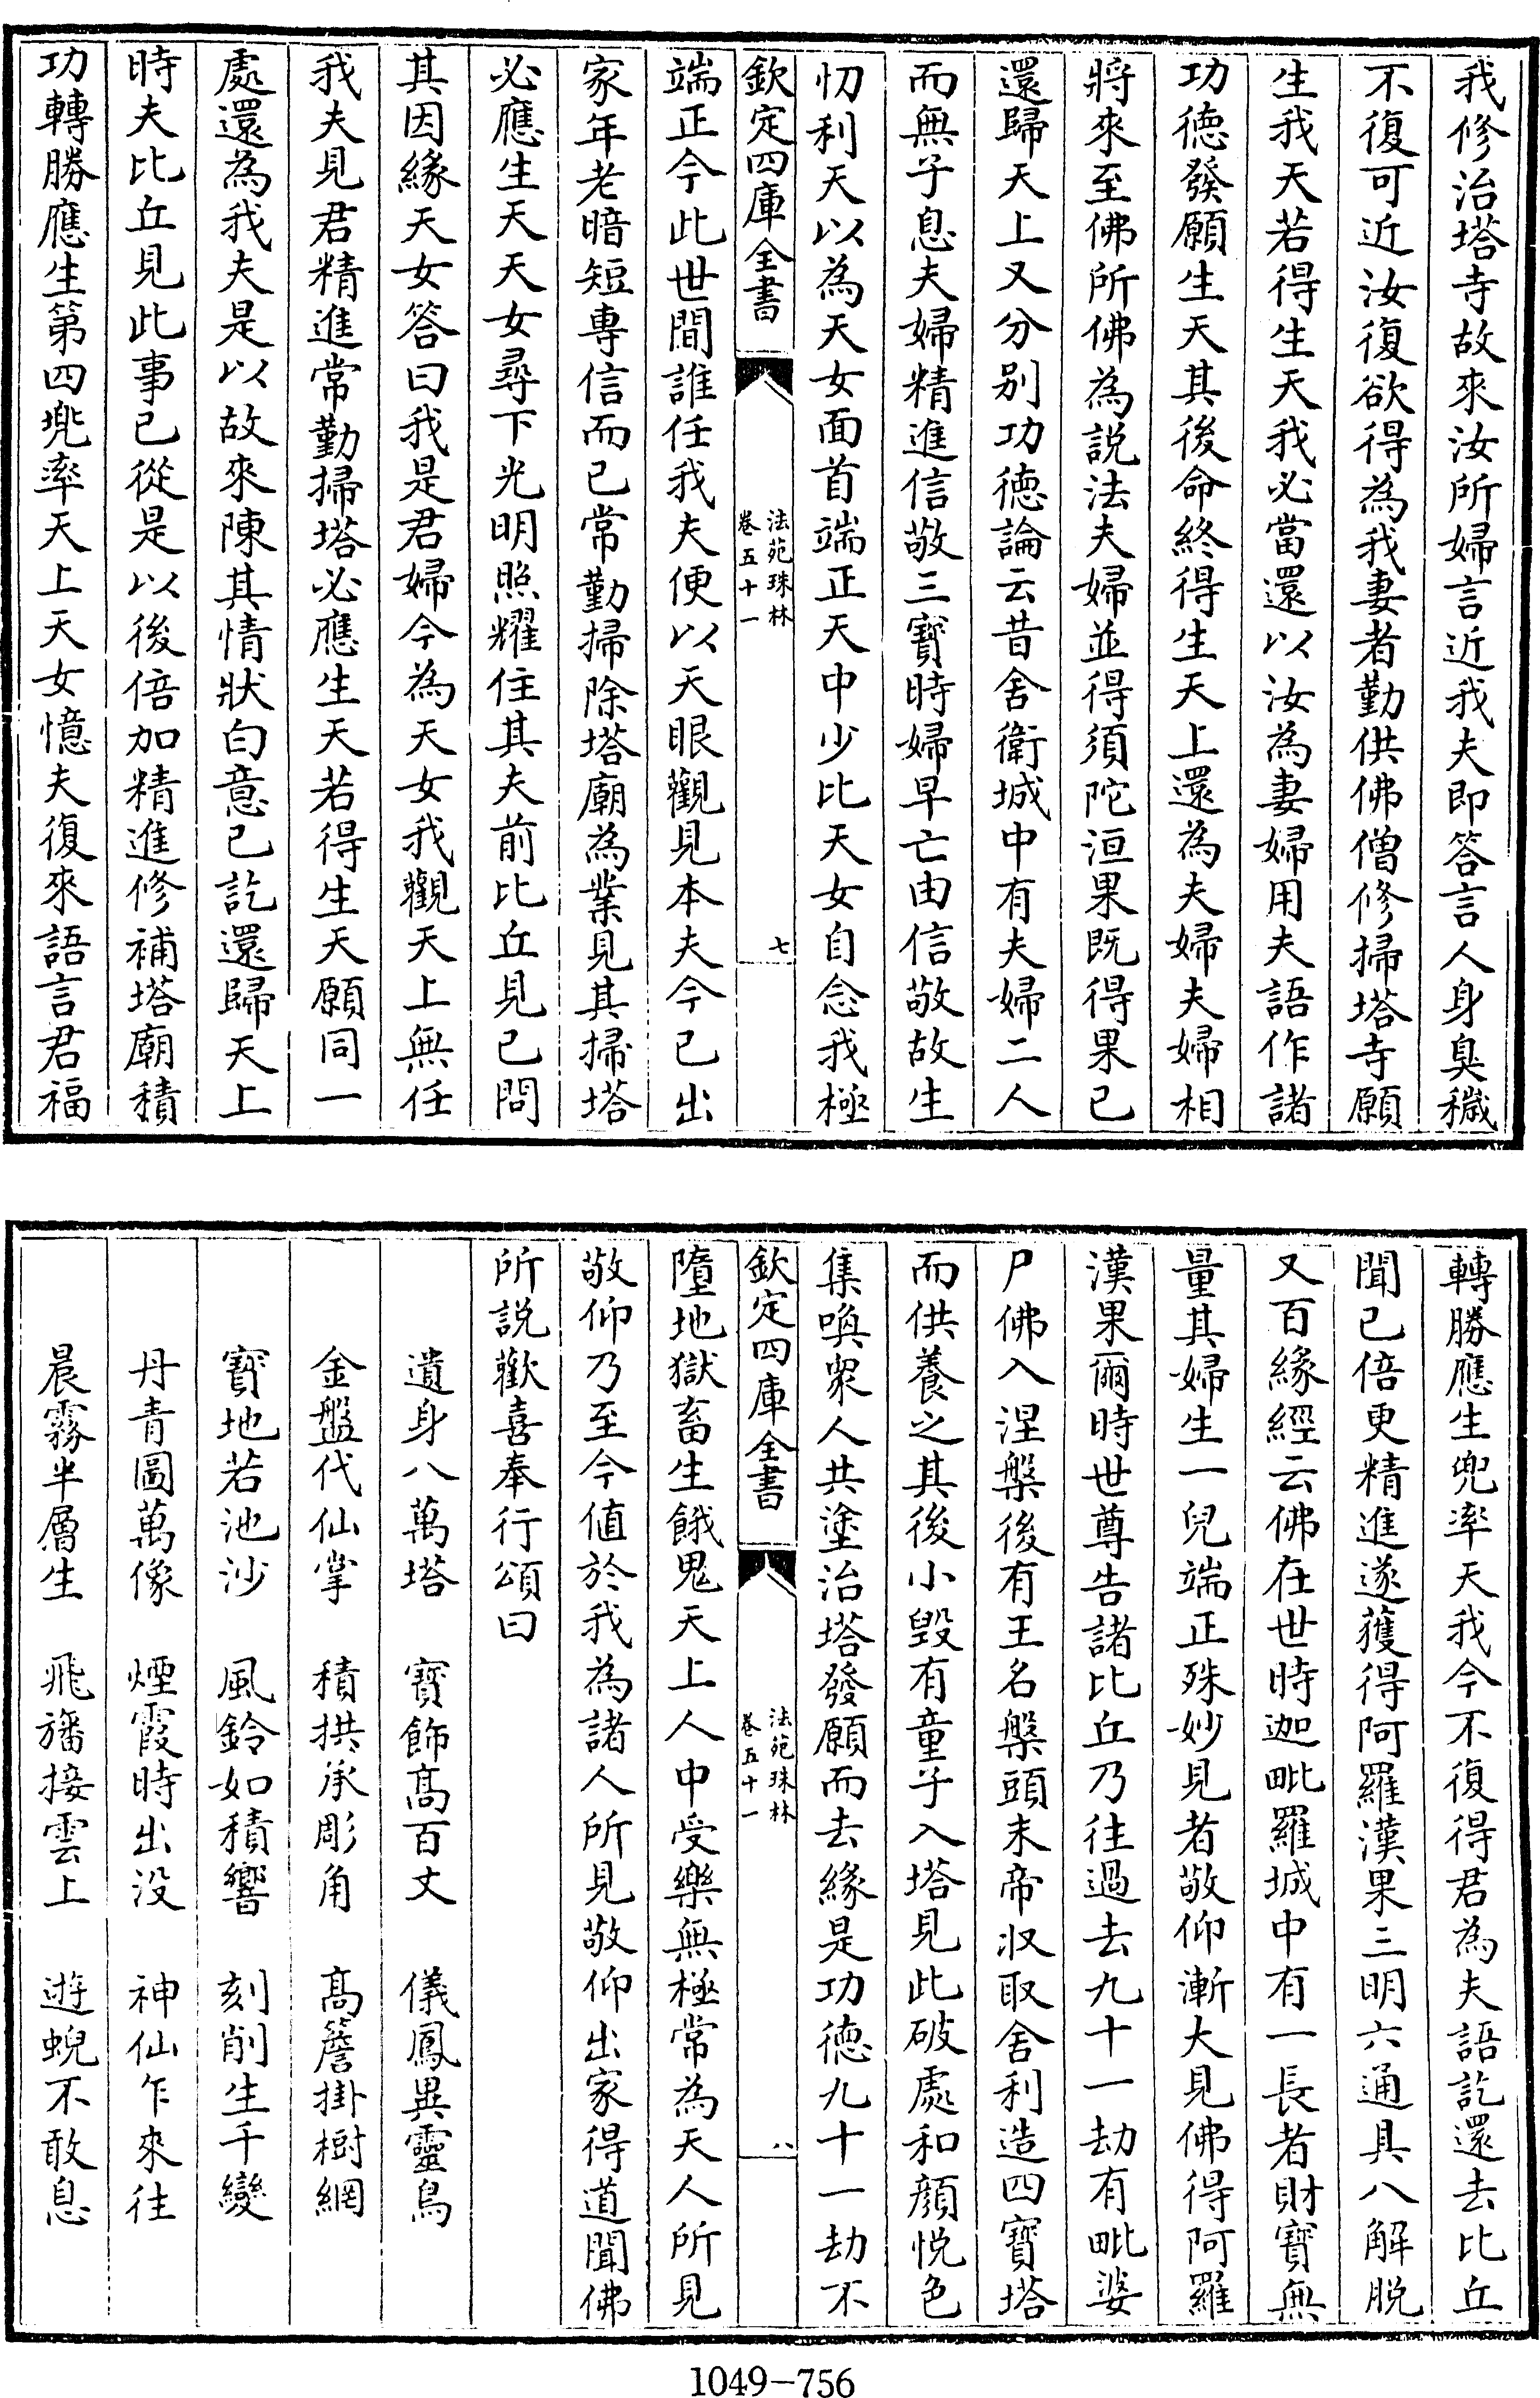 我修治塔寺故來汝所婦言近我夫即答言人身臭穢
不復可近汝復欲得為我妻者勤供佛僧修掃塔寺願
生我天若得生天我必當還以汝為妻婦用夫語作諸
功德發願生天其後命終得生天上還為夫婦夫婦相
將來至佛所佛為説法夫婦並得須陀洹果既得果已
還歸天上又分别功德論云昔舍衛城中有夫婦二人
而無子息夫婦精進信敬三寶時婦早亡由信敬故生
忉利天以為天女面首端正天中少比天女自念我極
欽定四庫全書
法苑珠林
卷五十一
七
端正今此世間誰任我夫便以天眼觀見本夫今已出
家年老暗短専信而已常勤掃除塔廟為業見其掃塔
必應生天天女尋下光明照耀住其夫前比丘見已問
其因緣天女答曰我是君婦今為天女我觀天上無任
我夫見君精進常勤掃塔必應生天若得生天願同一
處還為我夫是以故來陳其情狀白意已訖還歸天上
時夫比丘見此事已從是以後倍加精進修補塔廟積
功轉勝應生第四兜率天上天女憶夫復來語言君福
轉勝應生兜率天我今不復得君為夫語訖還去比丘
聞已倍更精進遂獲得阿羅漢果三明六通具八解脱
又百緣經云佛在世時迦毗羅城中有一長者財寶無
量其婦生一兒端正殊妙見者敬仰漸大見佛得阿羅
漢果爾時世尊告諸比丘乃往過去九十一劫有毗婆
尸佛入涅槃後有王名槃頭末帝收取舍利造四寶塔
而供養之其後小毀有童子入塔見此破處和顔悦色
集喚衆人共塗治塔發願而去緣是功德九十一劫不
欽定四庫全書
法苑珠林
卷五十一
八
墮地獄畜生餓鬼天上人中受樂無極常為天人所見
敬仰乃至今值於我為諸人所見敬仰出家得道聞佛
所説歡喜奉行頌曰
遺身八萬塔 寶飾髙百丈 儀鳳異靈鳥
金盤代仙掌 積拱承彫角 髙簷掛樹網
寶地若池沙 風鈴如積響 刻削生千變
丹青圖萬像 煙霞時出没 神仙乍來往
晨霧半層生 飛旛接雲上 遊蜺不敢息
1049-756